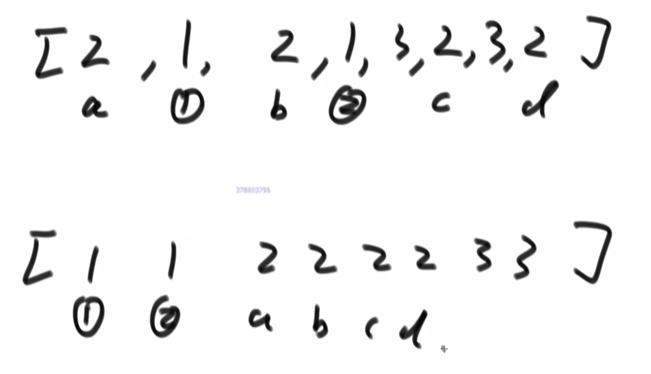 [ 2 , 1 , 2 , 1 , 3 , 2 , 3 , 2 ]
a ① b ② c d
378903796
[ 1 1 2 2 2 2 3 3 ]
① ② a b c d